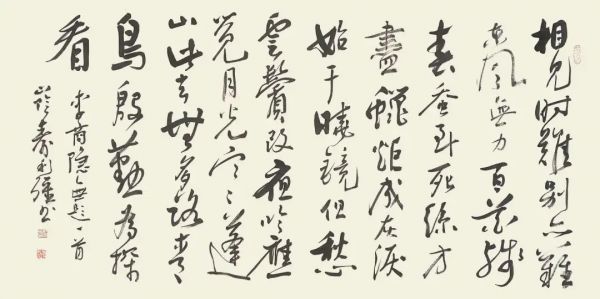 相見時難別亦難
東風無力百花殘
春蠶到死絲方
盡蠟炬成灰淚
始干曉鏡但愁
雲鬢改夜吟應
覺月光寒蓬
山此去無多路青
鳥殷勤為探
看
李商隱無題一首